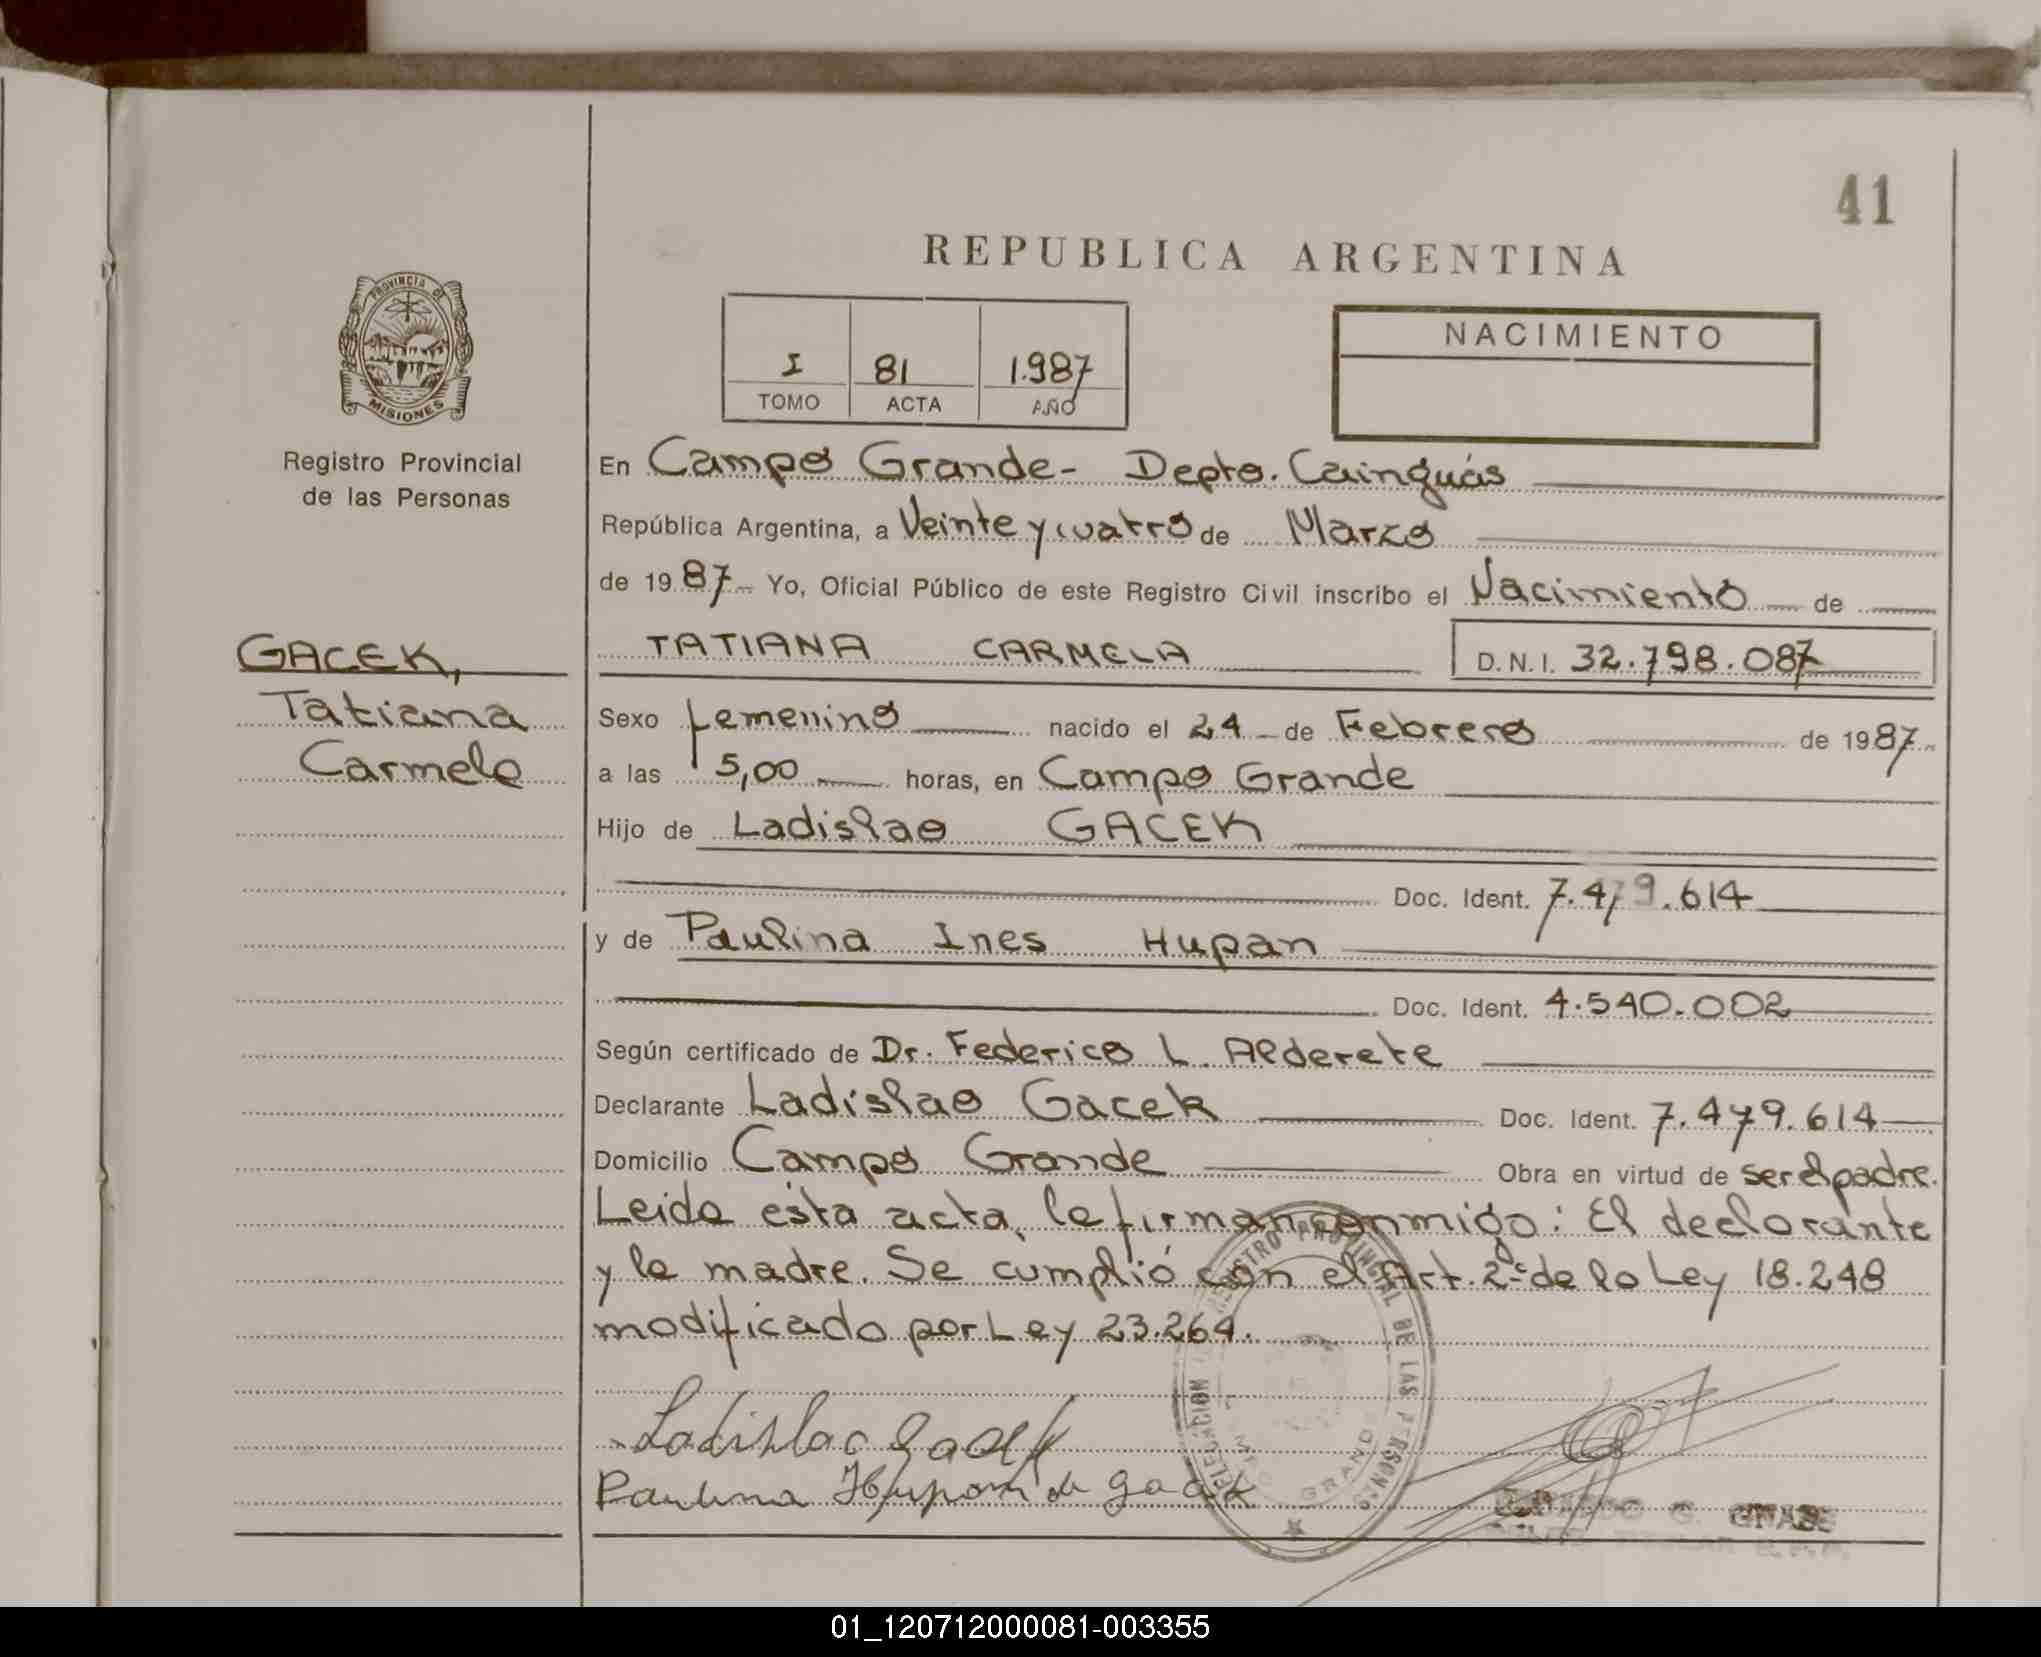 41
REPUBLICA ARGENTINA
PROVINCIA DE
MISIONES
Registro Provincial
de las Personas
I 81 1.987
TOMO ACTA AÑO
NACIMIENTO
En Campo Grande- Depto. Cainguás
República Argentina, a Veinte y cuatro de Marzo
de 1987- Yo, Oficial Público de este Registro Civil inscribo el Nacimiento de
GACEK,
Tatiana
Carmela
TATIANA CARMELA D.N.I. 32.798.087
Sexo femenino nacido el 24 de Febrero de 1987-
a las 5,00 horas, en Campo Grande
Hijo de Ladislao GACEK
Doc. Ident. 7.479.614
y de Paulina Ines Hupan
Doc. Ident. 4.540.002
Según certificado de Dr. Federico L. Alderete
Declarante Ladislao Gacek Doc. Ident. 7.479.614
Domicilio Campo Grande Obra en virtud de ser el padre.
Leida esta acta, la firman conmigo: El declarante
y la madre. Se cumplió con el Art. 2º de la Ley 18.248
modificado por Ley 23.264.
Ladislao Gacek
Paulina Hupan de Gacek
DELEGACION REGISTRO PROVINCIAL DE LAS PERSONAS
GRANDE
G.
01_120712000081-003355